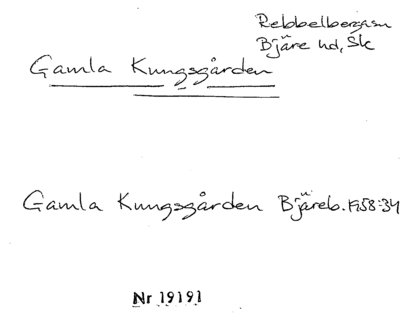 Rebbelbergasn
Bjäre hd, Sk
Gamla Kungsgården
Gamla Kungsgården Bjäreb. 1958:34
Nr 19191